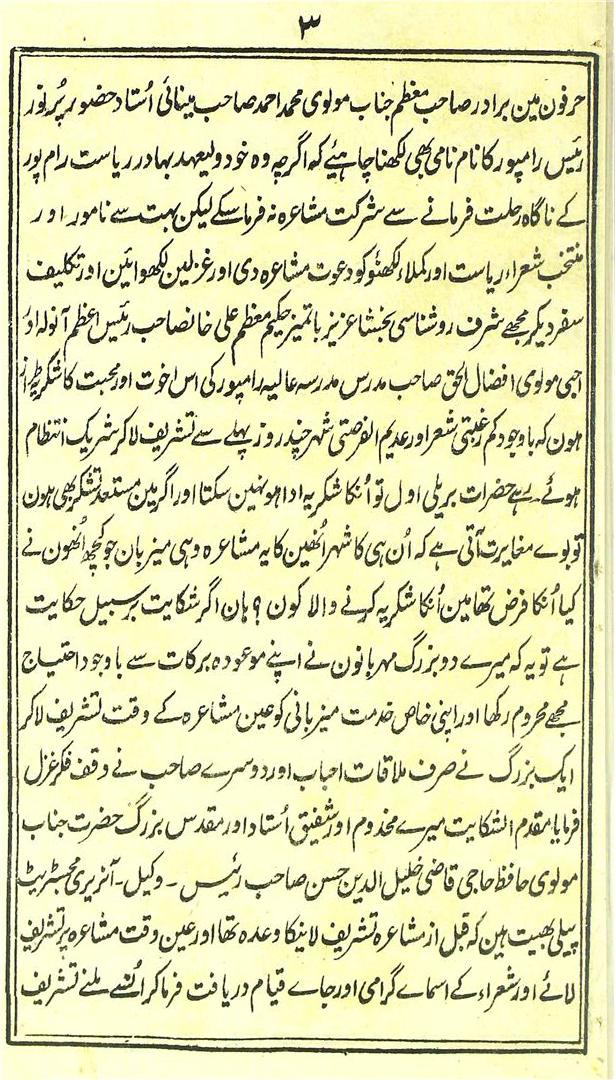 ۳
حرفون مین برادر صاحب معظم جناب مولوی محمد احمد صاحب مینائی اُستاد حضور پُر نور
رئیس رامپور کا نام نامی بھی لکھنا چاہئیے کہ اگرچہ وہ خود ولیعہد بہادر ریاست رام پور
کے ناگاہ رحلت فرمانے سے شرکت مشاعرہ نہ فرما سکے لیکن بہت سے نامور اور
منتخب شعراء ریاست اور کملاء لکھنؤ کو دعوت مشاعرہ دی اور غزلین لکھوائین اور تکلیف
سفر دیکر مجھے شرف روشناسی بخشا عزیز با تمیز حکیم معظم علی خانصاحب رئیس اعظم آنولہ اور
احبی مولوی افضال الحق صاحب مدرس مدرسہ عالیہ رامپور کی اس اخوت اور محبت کا شکریہ گزار
ہون کہ باوجود کم رغبتی شعر اور عدیم الفرصتی شہر چند روز پہلے سے تشریف لا کر شریک انتظام
ہوئے رہے حضرات بریلی اول تو اُنکا شکریہ ادا ہو نہین سکتا اور اگر مین مستعد تشکر بھی ہون
تو بوے مغایرت آتی ہے کہ اُن ہی کا شہر اُنھین کا یہ مشاعرہ وہی میزبان جو کچھ اُنھون نے
کیا اُنکا فرض تھا مین اُنکا شکریہ کرنے والا کون ؟ ہان اگر شکایت بر سبیل حکایت
ہے تو یہ کہ میرے دو بزرگ مہربانون نے اپنے موعودہ برکات سے باوجود احتیاج
مجھے محروم رکھا اور اپنی خاص خدمت میزبانی کو عین مشاعرہ کے وقت تشریف لا کر
ایک بزرگ نے صرف ملاقات احباب اور دوسرے صاحب نے وقف فکر غزل
فرمایا مقدم الشکایت میرے مخدوم اور شفیق اُستاد اور مقدس بزرگ حضرت جناب
مولوی حافظ حاجی قاضی خلیل الدین حسن صاحب رئیس ۔ وکیل ۔ آنریری مجسٹریٹ
پیلی بھیت ہین کہ قبل از مشاعرہ تشریف لانیکا وعدہ تھا اور عین وقت مشاعرہ پر تشریف
لائے اور شعراء کے اسمائے گرامی اور جاے قیام دریافت فرما کر اُنسے ملنے تشریف